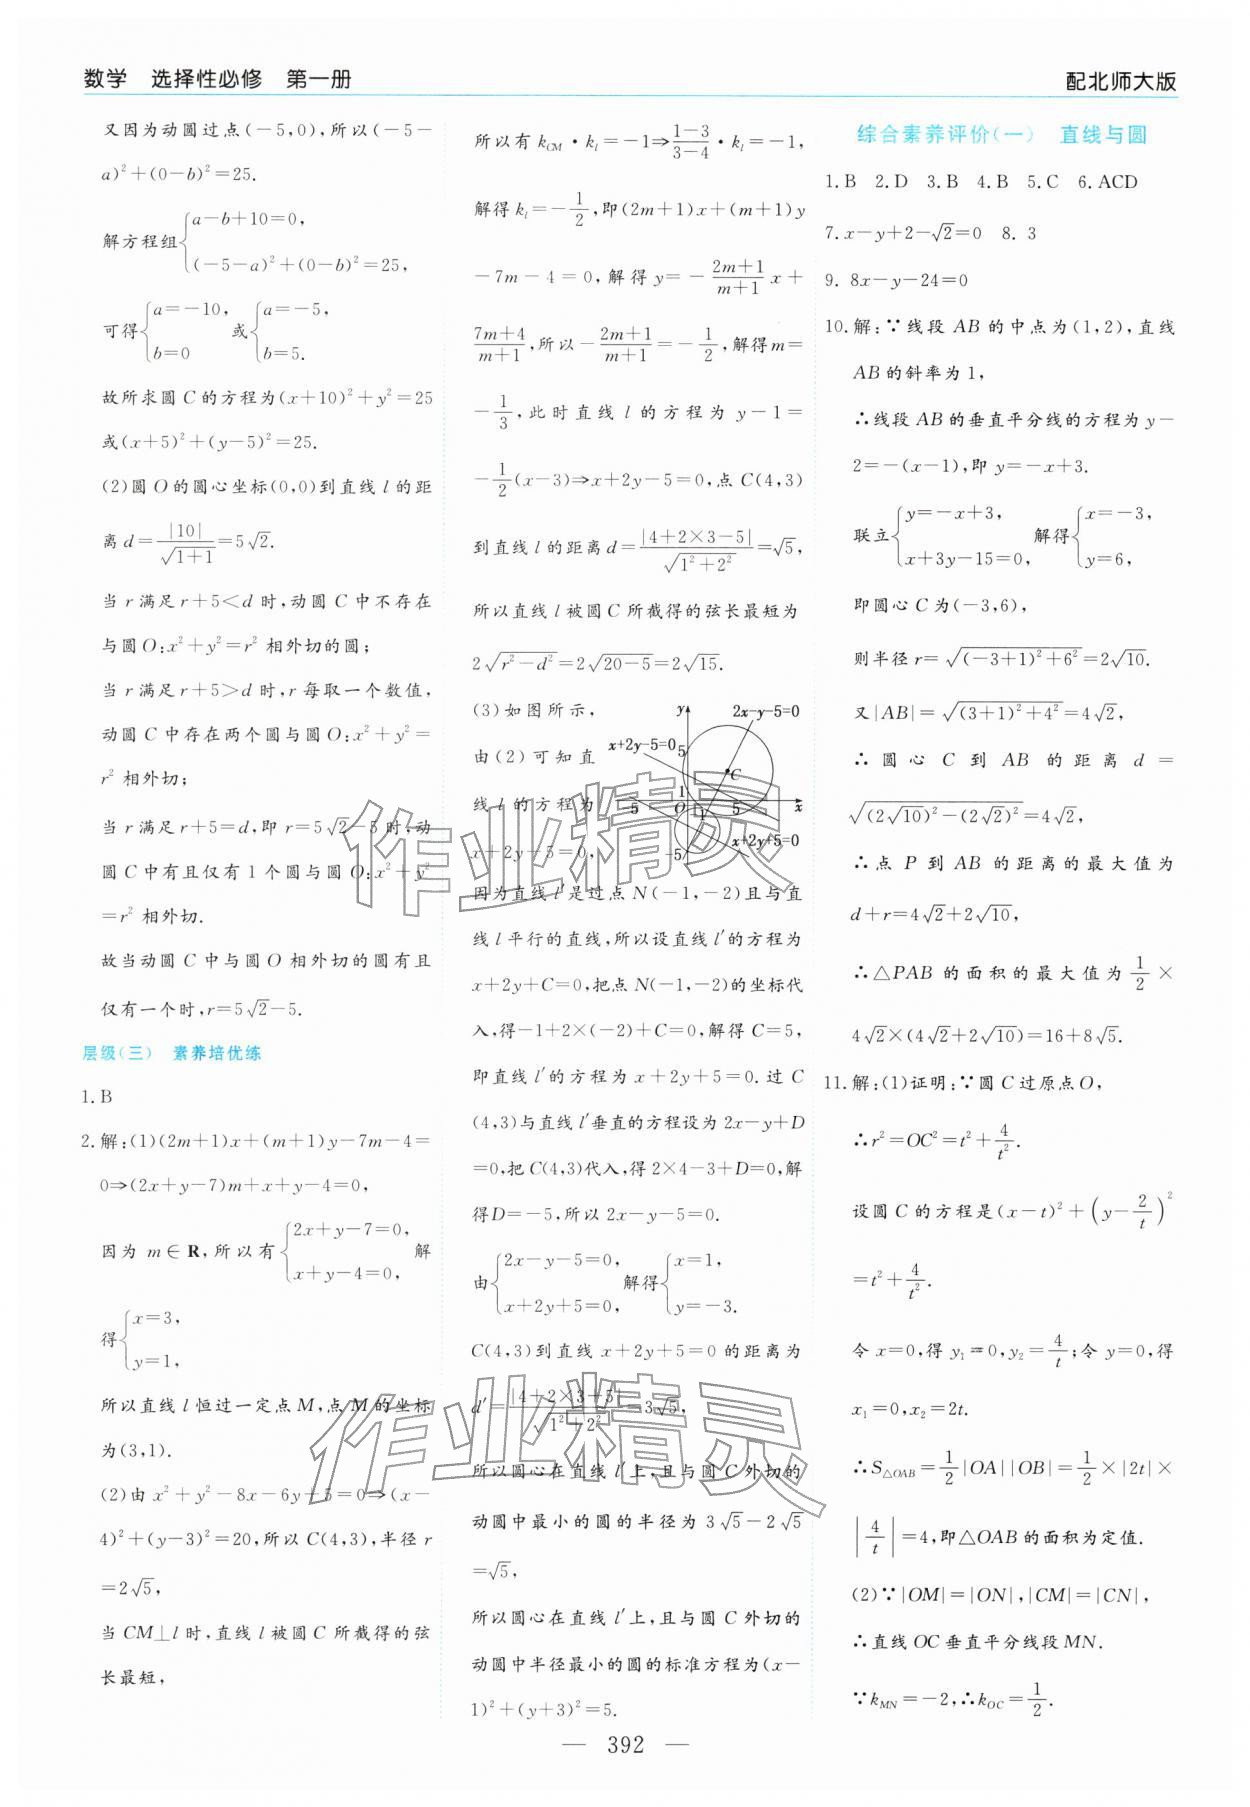 数学　选择性必修　第一册
配北师大版
又因为动圆过点(－5,0),所以(－5－
a)²+(0－b)²=25.
解方程组{a－b+10=0,
(－5－a)²+(0－b)²=25,
可得{a=－10, b=0 或{a=－5, b=5.
故所求圆 C 的方程为(x+10)²+y²=25
或(x+5)²+(y－5)²=25.
(2)圆 O 的圆心坐标(0,0)到直线 l 的距
离 d=|10|/√(1+1)=5√2.
当 r 满足 r+5<d 时,动圆 C 中不存在
与圆 O:x²+y²=r² 相外切的圆;
当 r 满足 r+5>d 时,r 每取一个数值,
动圆 C 中存在两个圆与圆 O:x²+y²=
r² 相外切;
当 r 满足 r+5=d,即 r=5√2－5 时,动
圆 C 中有且仅有 1 个圆与圆 O:x²+y²
=r² 相外切.
故当动圆 C 中与圆 O 相外切的圆有且
仅有一个时,r=5√2－5.
层级(三)　素养培优练
1.B
2.解:(1)(2m+1)x+(m+1)y－7m－4=
0⇒(2x+y－7)m+x+y－4=0,
因为 m∈R,所以有{2x+y－7=0, x+y－4=0, 解
得{x=3, y=1,
所以直线 l 恒过一定点 M,点 M 的坐标
为(3,1).
(2)由 x²+y²－8x－6y+5=0⇒(x－
4)²+(y－3)²=20,所以 C(4,3),半径 r
=2√5,
当 CM⊥l 时,直线 l 被圆 C 所截得的弦
长最短,
所以有 k_CM·k_l=－1⇒(1－3)/(3－4)·k_l=－1,
解得 k_l=－1/2,即(2m+1)x+(m+1)y
－7m－4=0,解得 y=－(2m+1)/(m+1) x+
(7m+4)/(m+1),所以－(2m+1)/(m+1)=－1/2,解得 m=
－1/3,此时直线 l 的方程为 y－1=
－1/2(x－3)⇒x+2y－5=0,点 C(4,3)
到直线 l 的距离 d=|4+2×3－5|/√(1²+2²)=√5,
所以直线 l 被圆 C 所截得的弦长最短为
2√(r²－d²)=2√(20－5)=2√15.
(3)如图所示,
由(2)可知直
线 l 的方程为
x+2y－5=0,
y
2x-y-5=0
x+2y-5=0
5
C
1
O
-5
1
5
x
-5
x+2y+5=0
因为直线 l′是过点 N(－1,－2)且与直
线 l 平行的直线,所以设直线 l′的方程为
x+2y+C=0,把点 N(－1,－2)的坐标代
入,得－1+2×(－2)+C=0,解得 C=5,
即直线 l′的方程为 x+2y+5=0.过 C
(4,3)与直线 l′垂直的方程设为 2x－y+D
=0,把 C(4,3)代入,得 2×4－3+D=0,解
得 D=－5,所以 2x－y－5=0.
由{2x－y－5=0, x+2y+5=0, 解得{x=1, y=－3.
C(4,3)到直线 x+2y+5=0 的距离为
d′=|4+2×3+5|/√(1²+2²)=3√5,
所以圆心在直线 l′上,且与圆 C 外切的
动圆中最小的圆的半径为 3√5－2√5
=√5,
所以圆心在直线 l′上,且与圆 C 外切的
动圆中半径最小的圆的标准方程为(x－
1)²+(y+3)²=5.
综合素养评价(一)　直线与圆
1.B　2.D　3.B　4.B　5.C　6.ACD
7.x－y+2－√2=0　8.3
9.8x－y－24=0
10.解:∵线段 AB 的中点为(1,2),直线
AB 的斜率为 1,
∴线段 AB 的垂直平分线的方程为 y－
2=－(x－1),即 y=－x+3.
联立{y=－x+3, x+3y－15=0, 解得{x=－3, y=6,
即圆心 C 为(－3,6),
则半径 r=√((－3+1)²+6²)=2√10.
又|AB|=√((3+1)²+4²)=4√2,
∴圆心 C 到 AB 的距离 d=
√((2√10)²－(2√2)²)=4√2,
∴点 P 到 AB 的距离的最大值为
d+r=4√2+2√10,
∴△PAB 的面积的最大值为 1/2×
4√2×(4√2+2√10)=16+8√5.
11.解:(1)证明:∵圆 C 过原点 O,
∴r²=OC²=t²+4/t².
设圆 C 的方程是(x－t)²+(y－2/t)²
=t²+4/t².
令 x=0,得 y₁=0,y₂=4/t;令 y=0,得
x₁=0,x₂=2t.
∴S_△OAB=1/2|OA||OB|=1/2×|2t|×
|4/t|=4,即△OAB 的面积为定值.
(2)∵|OM|=|ON|,|CM|=|CN|,
∴直线 OC 垂直平分线段 MN.
∵k_MN=－2,∴k_OC=1/2.
作业精灵
作业精灵
— 392 —